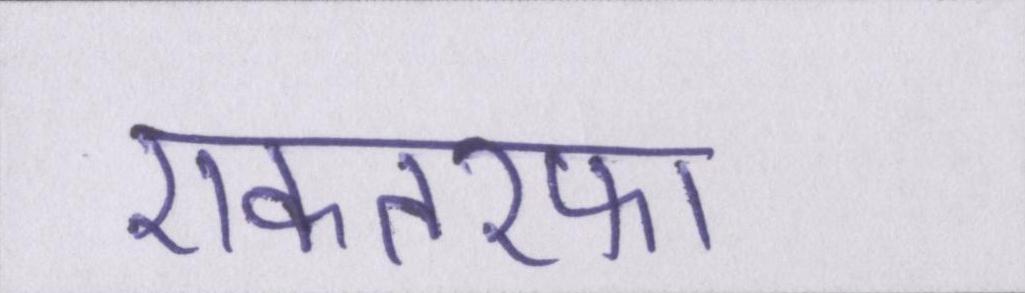 एकतरफा